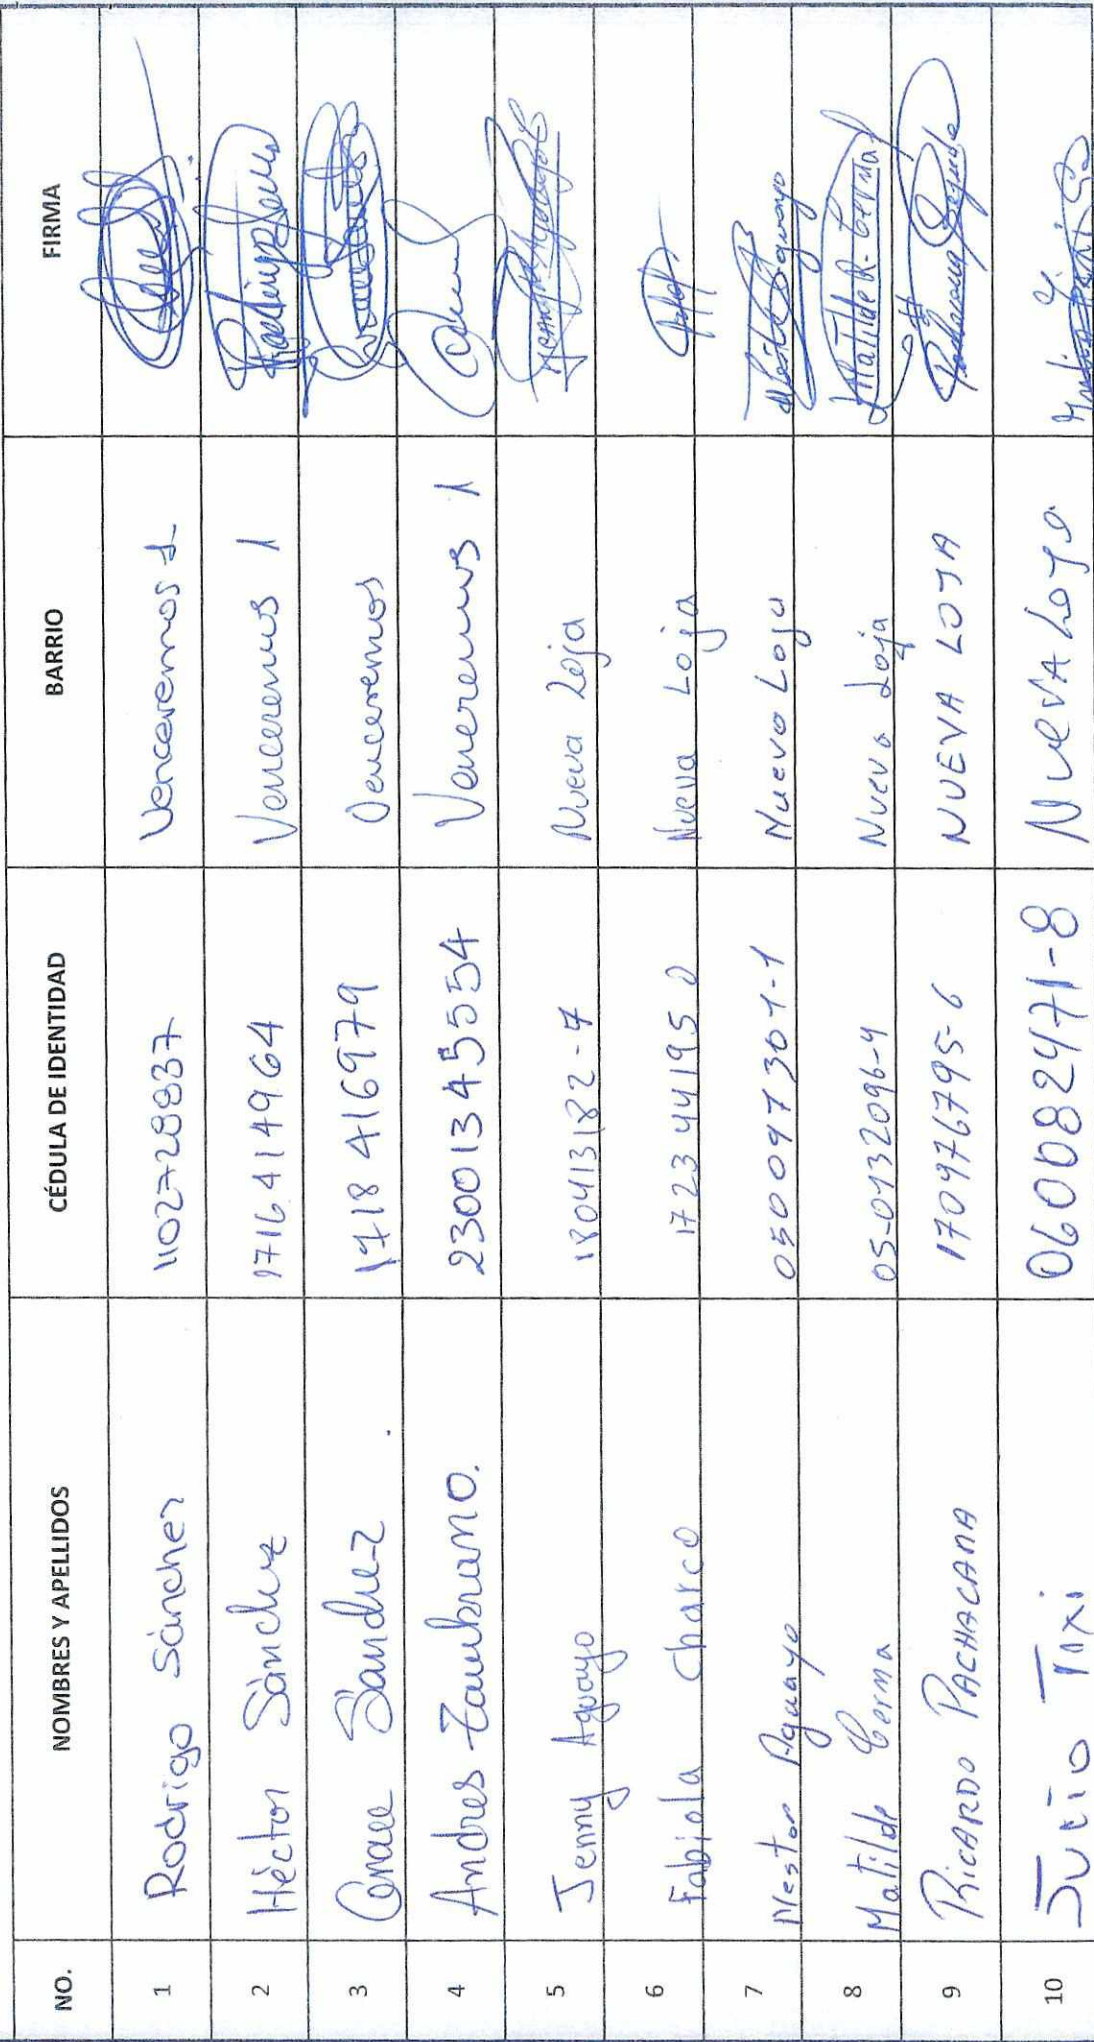 NO. NOMBRES Y APELLIDOS CÉDULA DE IDENTIDAD BARRIO FIRMA
1 Rodrigo Sánchez 1102728837 Venceremos 1
2 Héctor Sánchez 1716414964 Venceremos 1
3 Sánchez 1718416979 Venceremos
4 Andres Zambrano. 23001345554 Venceremos 1
5 Jenny Aguayo 180413182-7 Nueva Loja
6 Fabiola Charco 1723441950 Nueva Loja
7 Nestor Aguayo 050097301-1 Nueva Loja Nestor Aguayo
8 Matilde Cerma 05-0132096-4 Nueva Loja Matilde R. Cerma
9 RICARDO PACHACAMA 170976795-6 NUEVA LOJA
10 JULIO TAXI 060082471-8 NUEVA LOJA